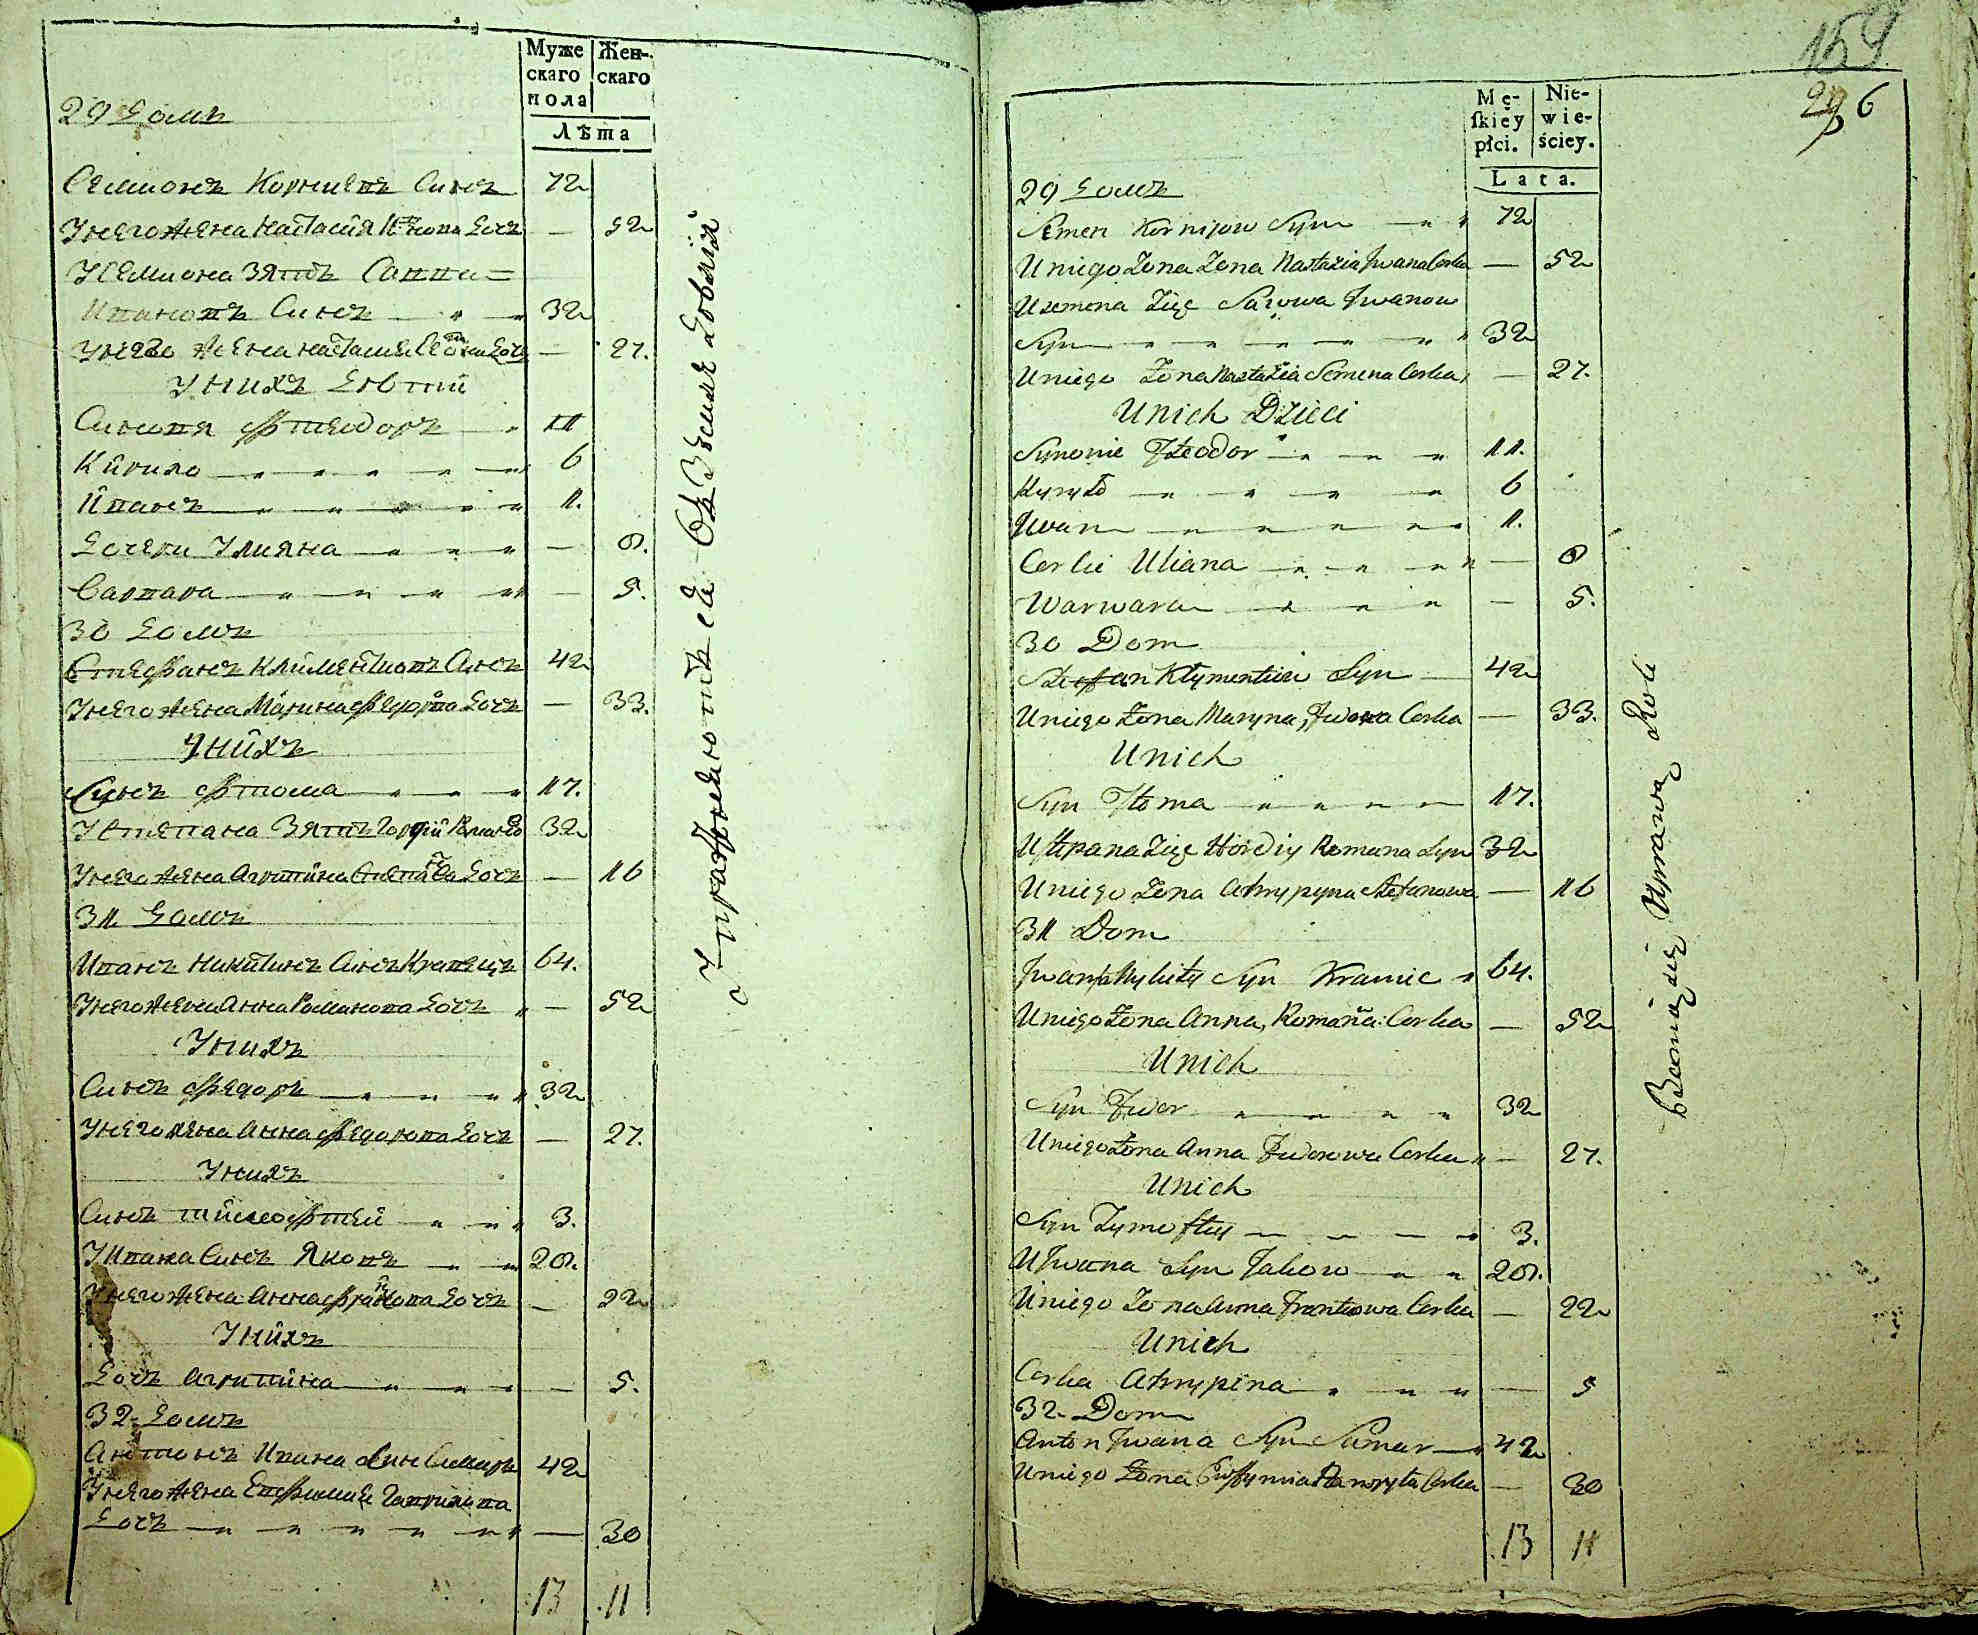 Муже
скаго
пола
Жен-
скаго
Лѣта
29 Домъ
Семионъ Корниевъ Синъ 72
У него жена Настасия Иванова Дочъ — 52
У Семиона Зять Савва =
Ивановъ Синъ 32
У него жена Настасия Семиона Дочъ — 27.
У нихъ Дѣти
Синовя Фтеодоръ 11
Кирило 6
Иванъ 1.
Дочери Улияна — 8.
Варвара — 5.
30 Домъ
Стефанъ Климентиовъ Синъ 42
У него жена Марина Федорова Дочъ — 33.
У нихъ
Синъ Фтома 17.
У Степана Зять Гордий Романов 32
У него жена Агритина Степанова Дочъ — 16
31 Домъ
Иванъ Никитинъ Синъ Кравецъ 64.
У него жена Анна Романова Дочъ — 52
У нихъ
Синъ Федоръ 32
У него жена Анна Федорова Дочъ — 27.
У нихъ
Синъ Тимофтей 3.
У Ивана Синъ Яковъ 28.
У него жена Анна Франкова Дочъ — 22
У нихъ
Дочъ Агритина — 5.
32 Домъ
Антонъ Ивана Син Самаръ 42
У него жена Евфимия Гаврилова
Дочъ — 30
13 11
Упражняются въ Земледовании
154
296
Mę-
skiéy
płci.
Nie-
wie-
ściey.
Lata.
29 Домъ
Semen Kornijow Syn 72
Uniego Zona Zona Nastazia Jwana Corka — 52
Usemena Zięc Sawwa Jwanow
Syn 32
Uniego Zona Nastazia Semena Corka — 27.
Unich Dzieci
Synowie Fteodor 11.
Kyryło 6
Jwan 1.
Corki Uliana — 8
Warwara — 5.
30 Dom
Stefan Kłymentiiw Syn 42
Uniego Zona Maryna Fwdora Corka — 33.
Unich
Syn Ftoma 17.
UStepana Zięc Hordiy Romana Syn 32
Uniego Zona Ahrypyna Stefanowa — 16
31 Dom
Jwan Mykity Syn Krawic 64.
Uniego Zona Anna Romana Corka — 52
Unich
Syn Fwdor 32
Uniego Zona Anna Fwdorowa Corka — 27.
Unich
Syn Tymoftey 3.
UJwana Syn Jakow 28.
Uniego Zona Anna Frankowa Corka — 22
Unich
Corka Ahrypina — 5
32 Dom
Anton Jwana Syn Samar 42
Uniego Zona Ewfymia Hawryła Corka — 30
13 11
Bawią się Uprawą Roli